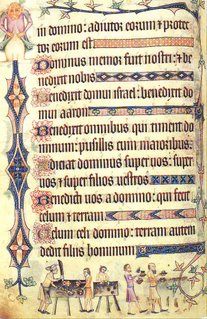 in domino: adiutor eorum & protec
tor eorum est
Dominus memor fuit nostri: & be
nedixit nobis
Benedixit domui israel: benedixit do
mui aaron
Benedixit omnibus qui timent do
minum: pusillis cum maioribus
Adiciat dominus super vos: super
vos & super filios vestros
Benedicti vos a domino: qui fecit
celum & terram
Celum celi domino: terram autem
dedit filiis hominum